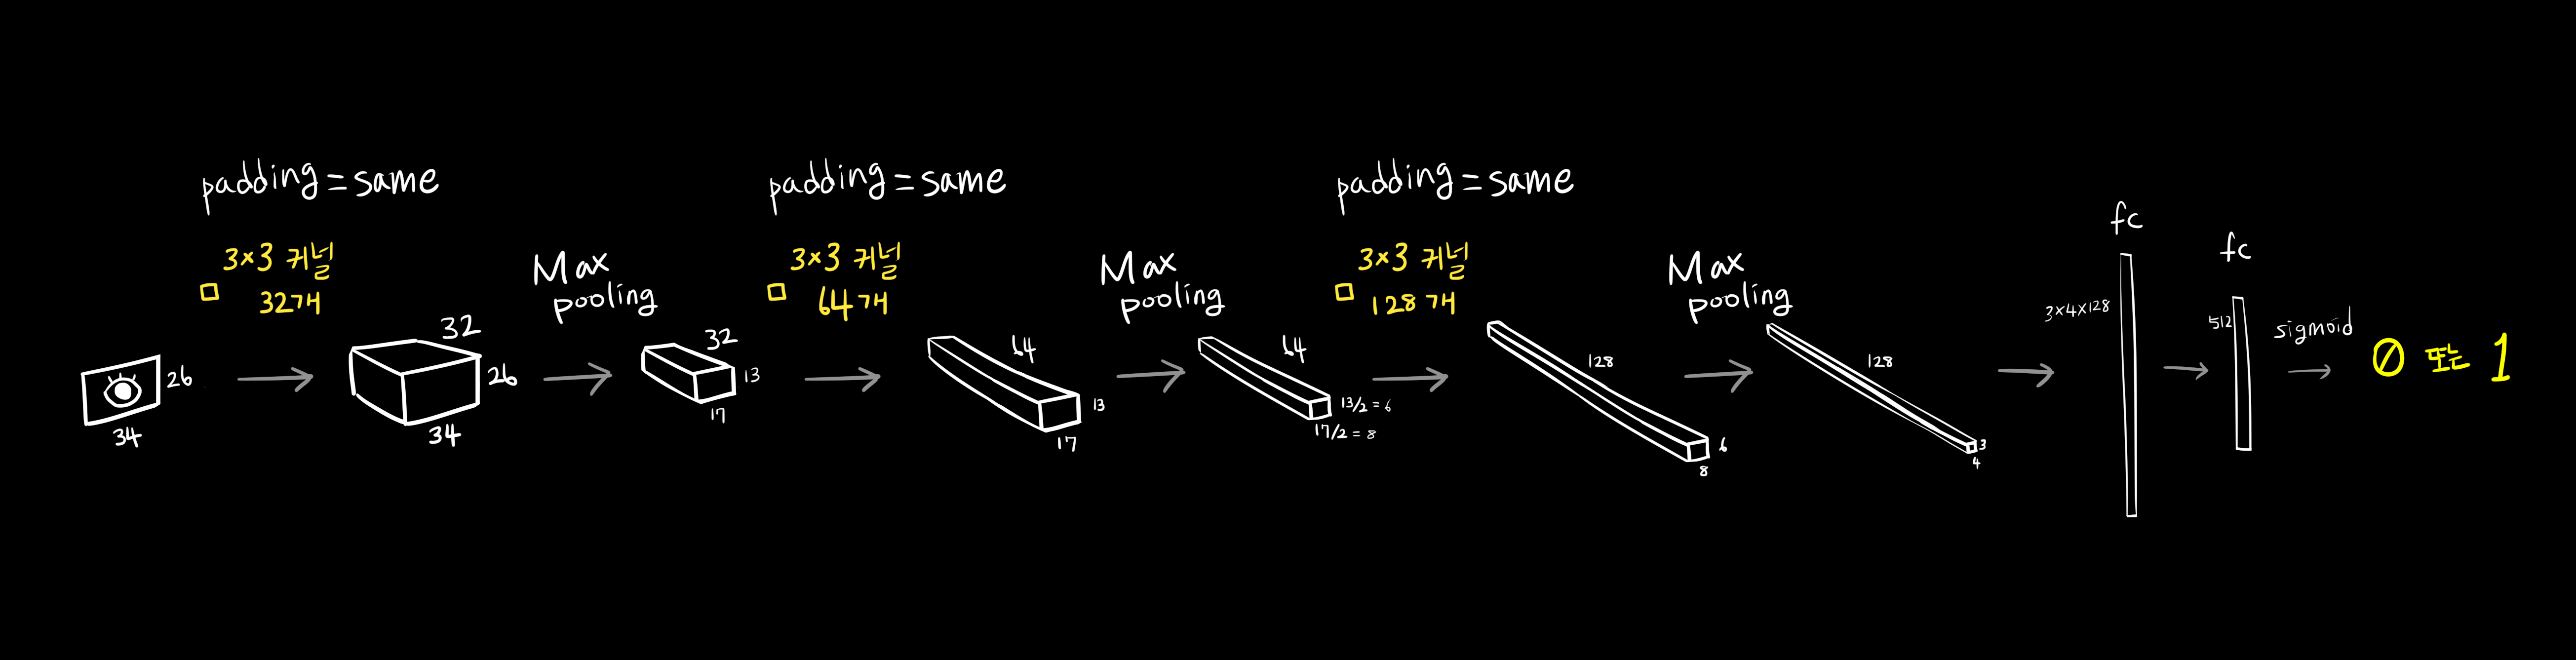 padding = same
3×3 커널
32개
26
34
32
26
34
Max
pooling
32
13
17
padding = same
3×3 커널
64개
64
13
17
Max
pooling
64
13/2 = 6
17/2 = 8
padding = same
3×3 커널
128개
128
6
8
Max
pooling
128
3
4
fc
3×4×128
fc
512
sigmoid
0 또는 1